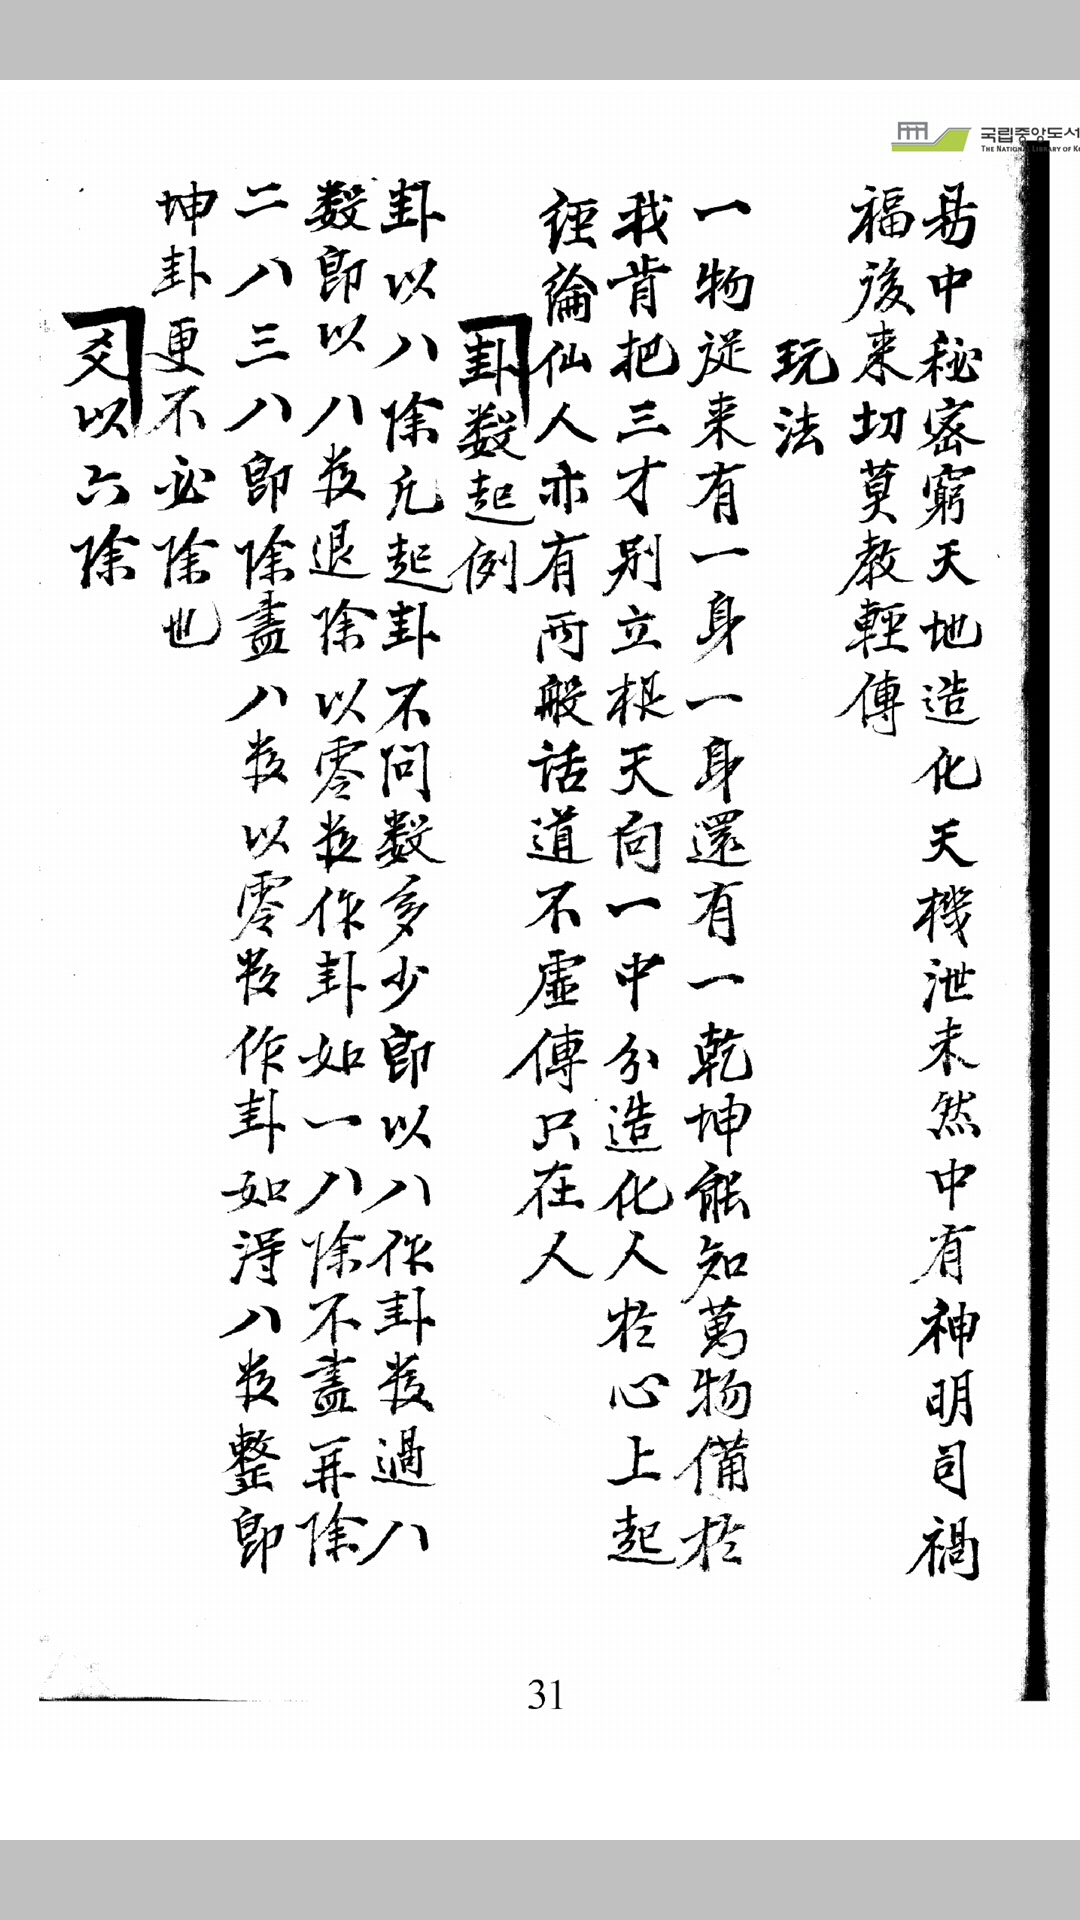 국립중앙도서
THE NATIONAL LIBRARY OF K
易中秘密窮天地造化天機泄未然中有神明司禍
福後来切莫教輕傳
玩法
一物從来有一身一身還有一乾坤能知萬物備於
我肯把三才别立根天向一中分造化人於心上起
経綸仙人亦有兩般話道不虛傳只在人
卦數起例
卦以八除凢起卦不問數多少卽以八作卦数過八
數卽以八数退除以零数作卦如一八除不盡再除
二八三八卽除盡八数以零数作卦如淂八数整卽
坤卦更不必除也
爻以六除
31